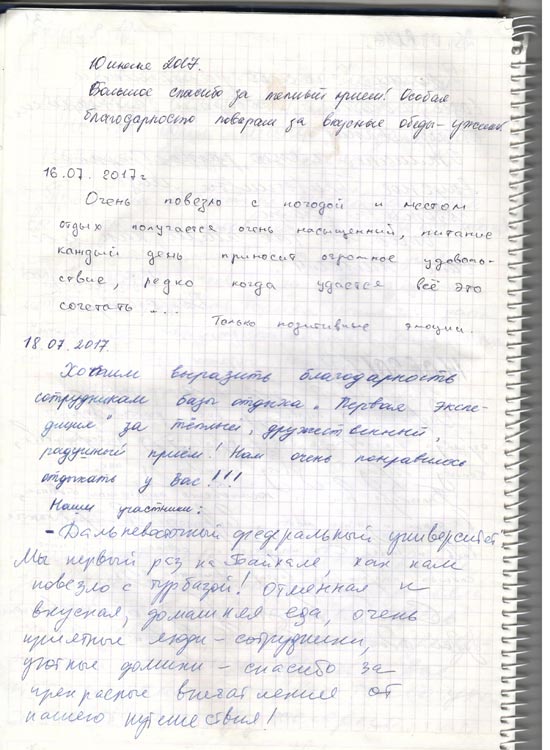 10 июля 2017.
Большое спасибо за теплый прием! Особая
благодарность поварам за вкусные обеды-ужины
16.07.2017г
Очень повезло с погодой и местом
отдых получается очень насыщенный, питание
каждый день приносит огромное удоволь-
ствие, редко когда удается всё это
сочетать ....
Только позитивные эмоции.
18.07.2017.
Хотим выразить благодарность
сотрудникам базы отдыха „Первая экспе-
диция" за тёплый, дружественный,
радушный приём! Нам очень понравилось
отдыхать у Вас!!!
Наши участники:
- Дальневосточный федеральный университет"
Мы первый раз на Байкале, как нам
повезло с турбазой! Отменная и
вкусная, домашняя еда, очень
приятные люди - сотрудники,
уютные домики - спасибо за
прекрасные впечатления от
нашего путешествия!